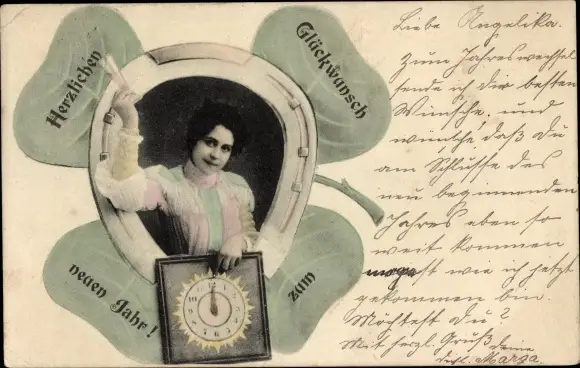 Herzlichen
Glückwunsch
zum
neuen Jahr!
12
Liebe Angelika.
Zum Jahreswechsel
sende ich dir besten
Wünsche, und
wünsche, daß du
am Schlusse des
neu beginnenden
Jahres eben so
weit kommen
mögest wie ich jetzt
gekommen bin.
Möchtest du?
Mit herzl. Gruß
deine
Marga.